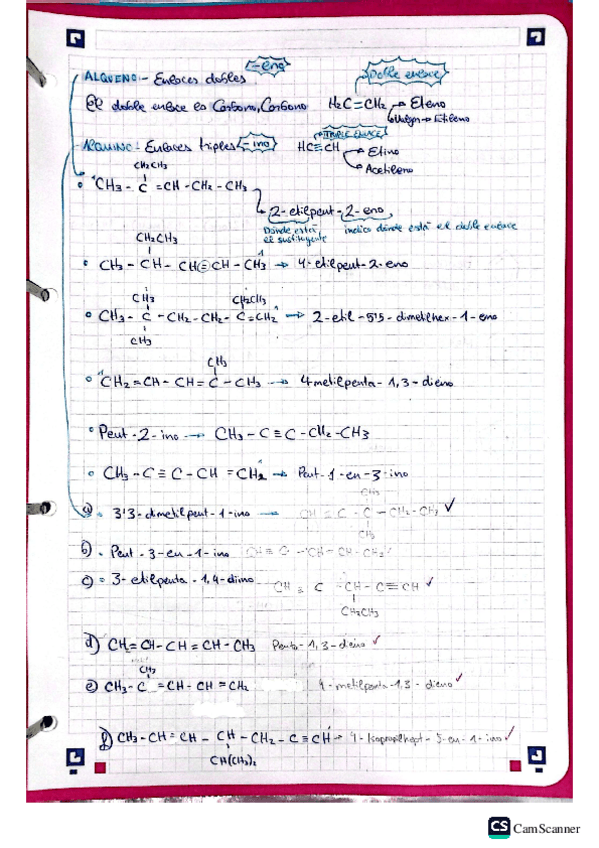 ALQUENO:- Enlaces dobles -eno
Doble enlace
El doble enlace es Carbono, Carbono H2C=CH2 → Eteno
→ Etileno
TRIPLE ENLACE
ALQUINO:- Enlaces triples -ino HC≡CH → Etino
→ Acetileno
CH2CH3
CH3 - C = CH - CH2 - CH3
2-etilpent-2-eno,
Dónde está el sustituyente
indica dónde está el doble enlace
CH2CH3
CH3 - CH - CH=CH - CH3 → 4-etilpent-2-eno
CH3 CH2CH3
CH3 - C - CH2 - CH2 - C = CH2 → 2-etil-5'5-dimetilhex-1-eno
CH3
CH3
CH2 = CH - CH = C - CH3 → 4metilpenta-1,3-dieno
Pent-2-ino → CH3 - C ≡ C - CH2 - CH3
CH3 - C ≡ C - CH = CH2 → Pent-1-en-3-ino
CH3
a) 3'3-dimetilpent-1-ino → CH ≡ C - C - CH2 - CH3 ✓
CH3
b) Pent-3-en-1-ino CH ≡ C - CH = CH - CH3
c) 3-etilpenta-1,4-diino CH ≡ C - CH - C ≡ CH ✓
CH2CH3
d) CH2 = CH - CH = CH - CH3 Penta-1,3-dieno ✓
CH3
e) CH3 - C = CH - CH = CH2 4-metilpenta-1,3-dieno ✓
f) CH3 - CH = CH - CH - CH2 - C ≡ CH → 4-Isopropilhept-5-en-1-ino ✓
CH(CH3)2
CS CamScanner